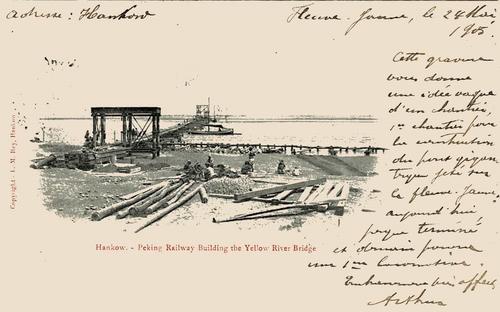 Adresse: Hankow
Fleuve-Jaune, le 28 Mai
1905.
Cette gravure
vous donne
une idée vague
d'un chantier,
1er chantier pour
la construction
du pont gigan-
tique jeté sur
le fleuve Jaune
aujourd'hui
presque terminé
et demain passera
une 1ère locomotive.
bien affect
Arthur
Copyright: I. M. Rey, Hankow.
Hankow. - Peking Railway Building the Yellow River Bridge